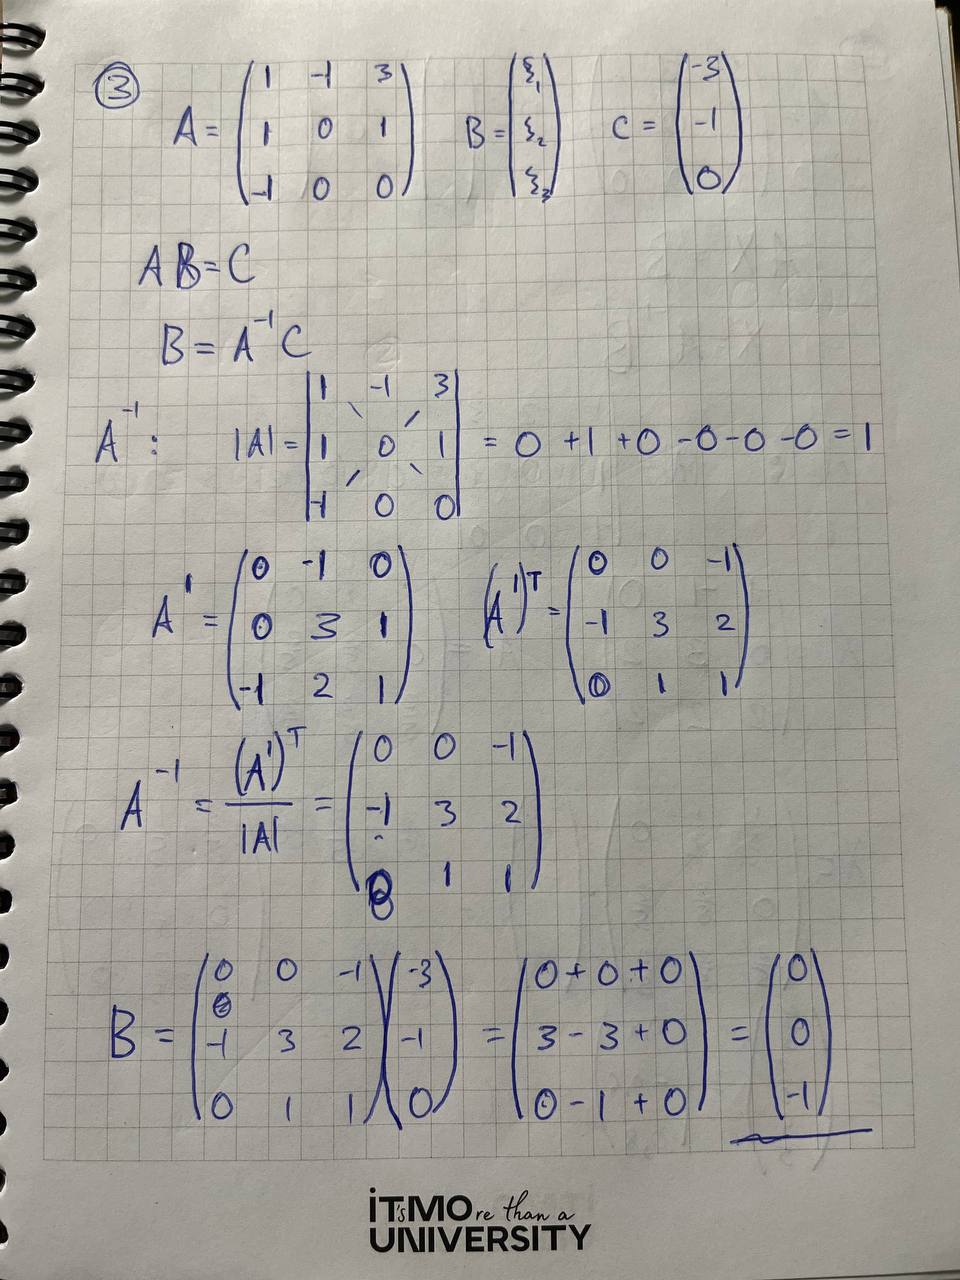 ③ A = ( 1 -1 3 ; 1 0 1 ; -1 0 0 ) B = ( ξ₁ ; ξ₂ ; ξ₃ ) C = ( -3 ; -1 ; 0 )
AB = C
B = A⁻¹ C
A⁻¹ : |A| = | 1 -1 3 ; 1 0 1 ; -1 0 0 | = 0 + 1 + 0 - 0 - 0 - 0 = 1
A' = ( 0 -1 0 ; 0 3 1 ; -1 2 1 ) (A')ᵀ = ( 0 0 -1 ; -1 3 2 ; 0 1 1 )
A⁻¹ = (A')ᵀ / |A| = ( 0 0 -1 ; -1 3 2 ; 0 1 1 )
B = ( 0 0 -1 ; -1 3 2 ; 0 1 1 ) ( -3 ; -1 ; 0 ) = ( 0 + 0 + 0 ; 3 - 3 + 0 ; 0 - 1 + 0 ) = ( 0 ; 0 ; -1 )
iT'sMOre than a
UNIVERSITY